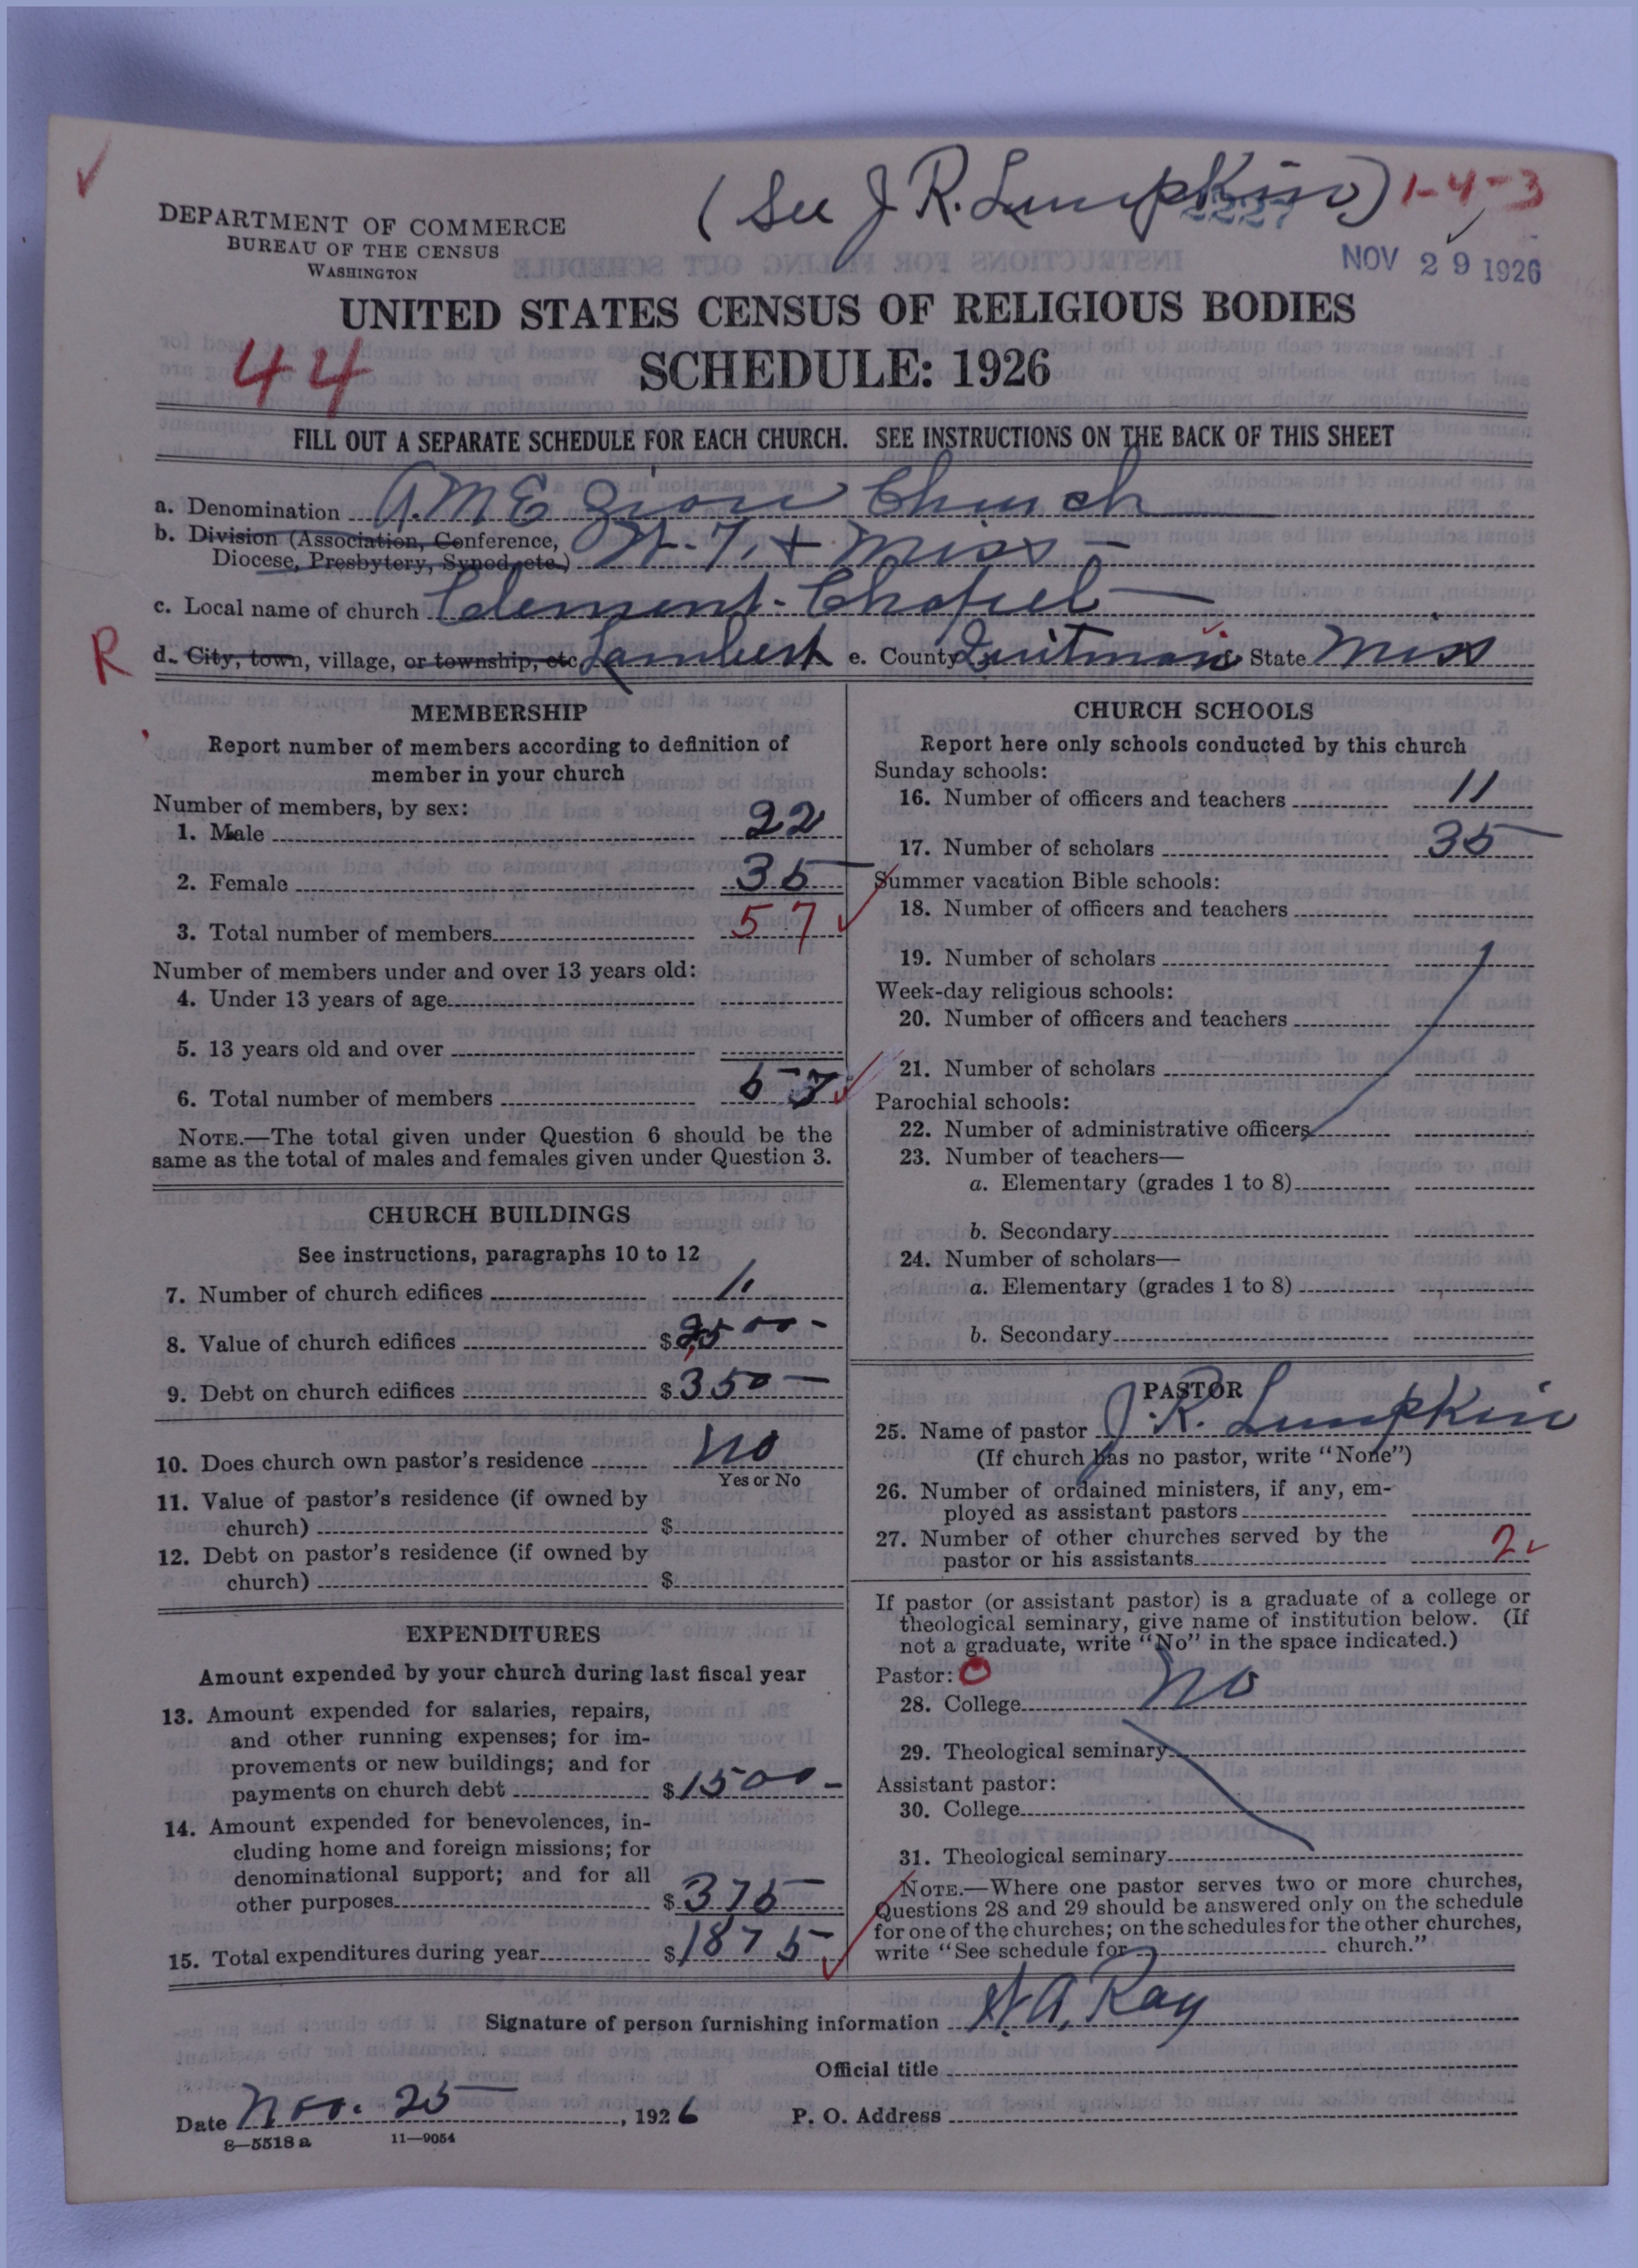 (See J R. Lumpkin) 1-4-3
2227
DEPARTMENT OF COMMERCE
BUREAU OF THE CENSUS
WASHINGTON
NOV 29 1926
UNITED STATES CENSUS OF RELIGIOUS BODIES
44
SCHEDULE: 1926
FILL OUT A SEPARATE SCHEDULE FOR EACH CHURCH. SEE INSTRUCTIONS ON THE BACK OF THIS SHEET
a. Denomination A. M E Zion Church
b. Division (Association, Conference, Diocese, Presbytery, Synod, etc.) W. T. + Miss
c. Local name of church Clement-Chapel
R
d. City, town, village, or township, etc Lambert e. County Quitman State Miss
MEMBERSHIP
Report number of members according to definition of
member in your church
Number of members, by sex:
1. Male 22
2. Female 35
3. Total number of members 57
Number of members under and over 13 years old:
4. Under 13 years of age
5. 13 years old and over
6. Total number of members 57
NOTE.—The total given under Question 6 should be the
same as the total of males and females given under Question 3.
CHURCH BUILDINGS
See instructions, paragraphs 10 to 12
7. Number of church edifices 1
8. Value of church edifices $2500-
9. Debt on church edifices $350-
10. Does church own pastor's residence No
Yes or No
11. Value of pastor's residence (if owned by
church) $
12. Debt on pastor's residence (if owned by
church) $
EXPENDITURES
Amount expended by your church during last fiscal year
13. Amount expended for salaries, repairs,
and other running expenses; for im-
provements or new buildings; and for
payments on church debt $1500-
14. Amount expended for benevolences, in-
cluding home and foreign missions; for
denominational support; and for all
other purposes $375
15. Total expenditures during year $1875
CHURCH SCHOOLS
Report here only schools conducted by this church
Sunday schools:
16. Number of officers and teachers 11
17. Number of scholars 35
Summer vacation Bible schools:
18. Number of officers and teachers
19. Number of scholars
Week-day religious schools:
20. Number of officers and teachers
21. Number of scholars
Parochial schools:
22. Number of administrative officers
23. Number of teachers—
a. Elementary (grades 1 to 8)
b. Secondary
24. Number of scholars—
a. Elementary (grades 1 to 8)
b. Secondary
PASTOR
25. Name of pastor J. R. Lumpkin
(If church has no pastor, write "None")
26. Number of ordained ministers, if any, em-
ployed as assistant pastors
27. Number of other churches served by the
pastor or his assistants 2
If pastor (or assistant pastor) is a graduate of a college or
theological seminary, give name of institution below. (If
not a graduate, write "No" in the space indicated.)
Pastor: O
28. College No
29. Theological seminary
Assistant pastor:
30. College
31. Theological seminary
NOTE.—Where one pastor serves two or more churches,
Questions 28 and 29 should be answered only on the schedule
for one of the churches; on the schedules for the other churches,
write "See schedule for church."
Signature of person furnishing information A. Ray
Official title
Date Nov. 25, 1926 P. O. Address
8—5518 a 11—9054